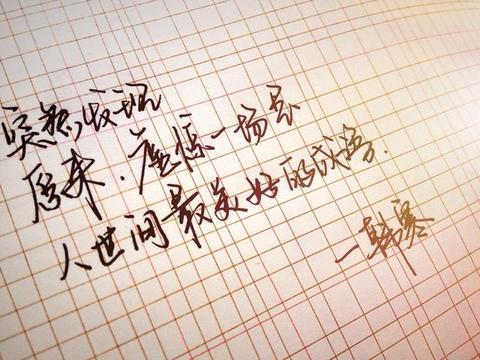 突然发现
原来.虚惊一场是
人世间最美好的成语.
—韩寒